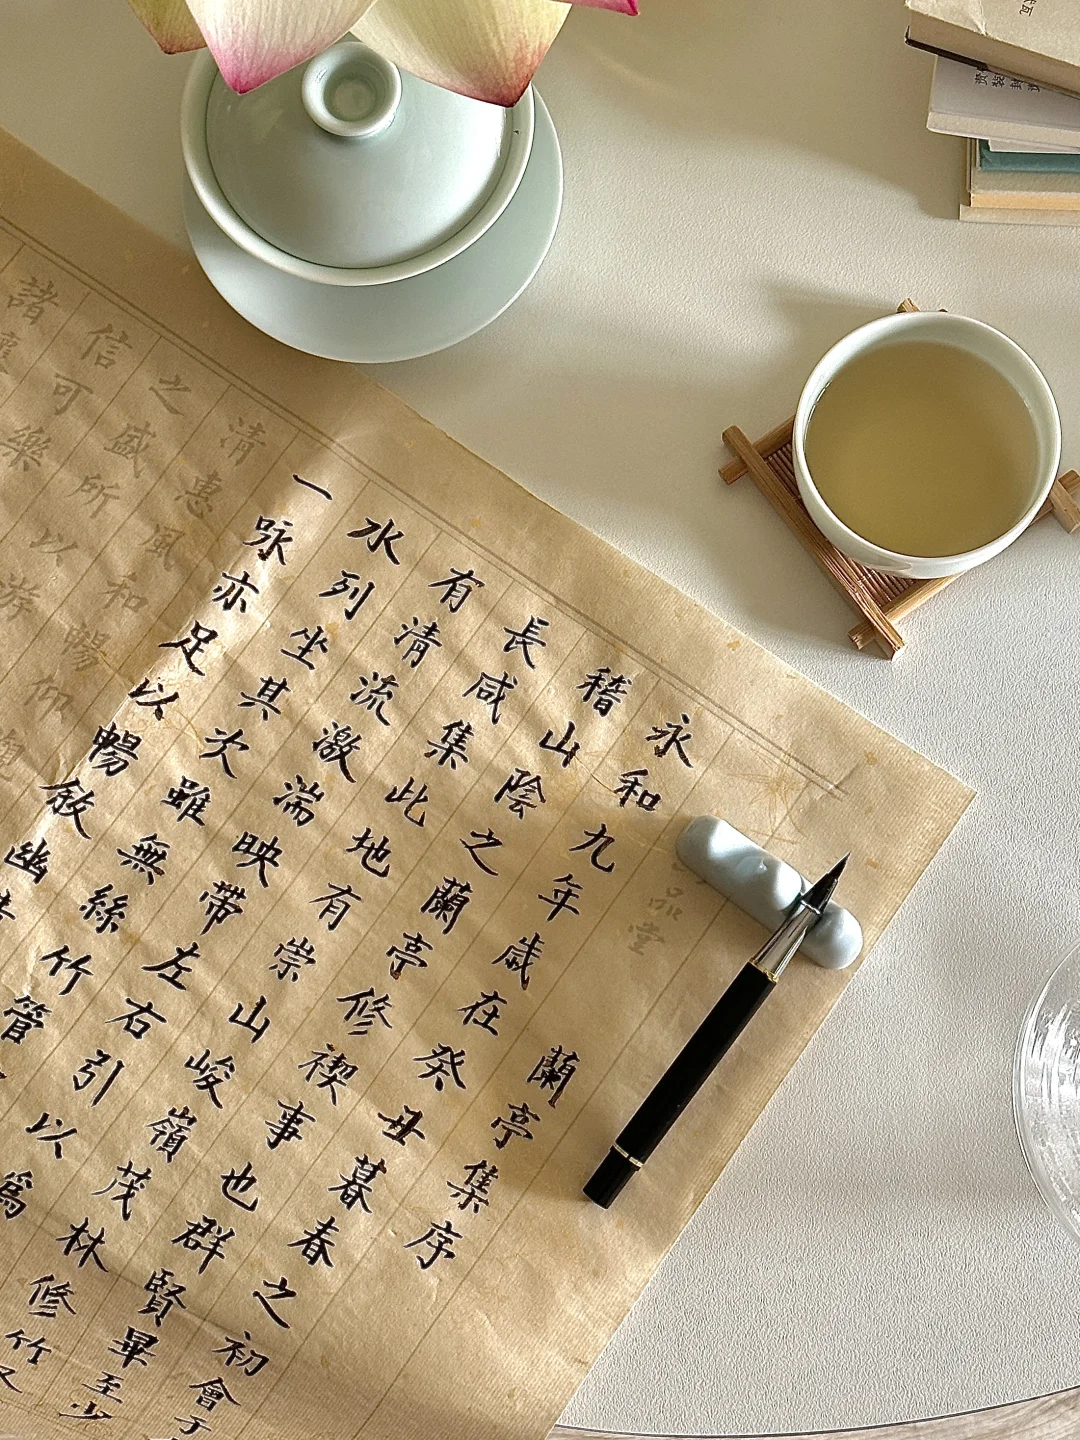 品堂
蘭亭集序
永和九年歲在癸丑暮春之初會于
稽山陰之蘭亭修禊事也群賢畢至少
長咸集此地有崇山峻嶺茂林修竹又
有清流激湍映帶左右引以爲
水列坐其次雖無絲竹管
一咏亦足以暢敘幽
清惠風和暢仰觀
之盛所以游
信可樂
諸懷